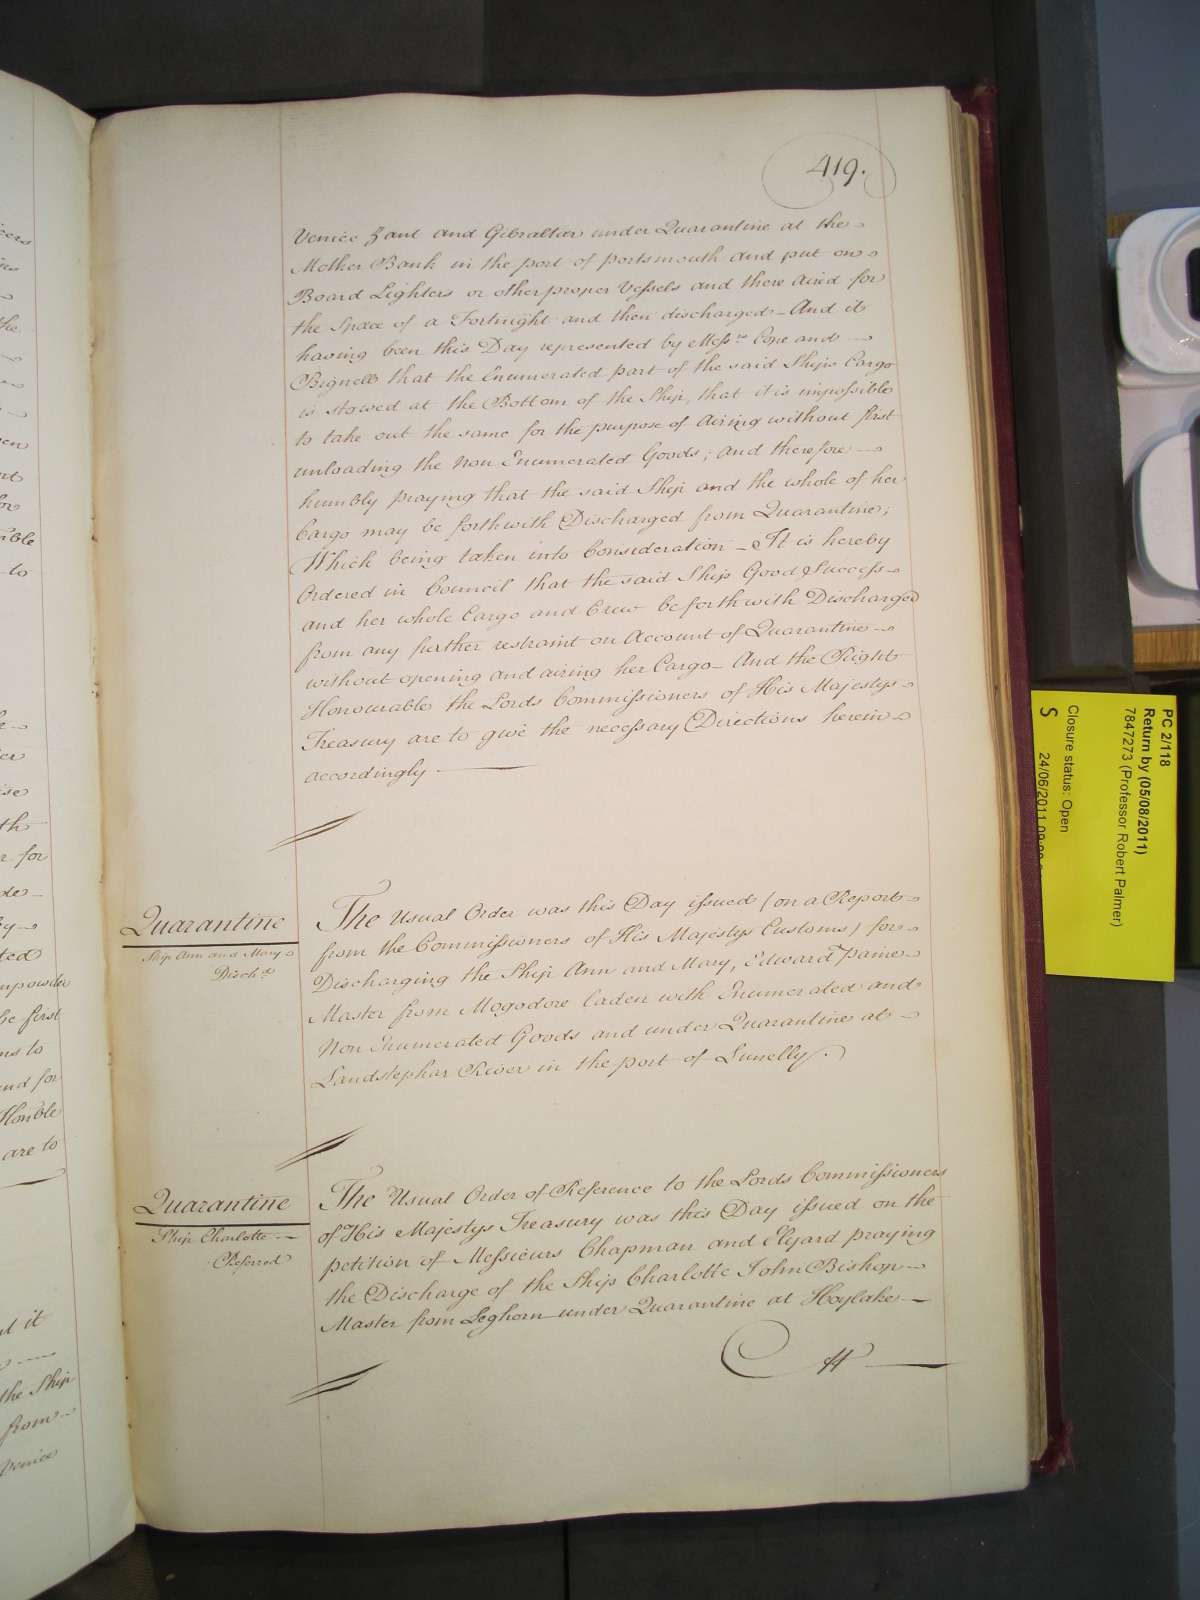 419.
Venice Zant and Gibraltar under Quarantine at the
Mother Bank in the port of portsmouth and put on
Board Lighters or other proper Vessels and there Aired for
the Space of a Fortnight and then discharged - And it
having been this Day represented by Messrs. Cope and
Bignell that the Enumerated part of the said Ships Cargo
is stowed at the Bottom of the Ship, that it is impossible
to take out the same for the purpose of Airing without first
unloading the Non Enumerated Goods; and therefore
humbly praying that the said Ship and the whole of her
Cargo may be forthwith Discharged from Quarantine;
Which being taken into Consideration - It is hereby
Ordered in Council that the said Ship Good Success
and her whole Cargo and Crew be forthwith Discharged
from any further restraint on Account of Quarantine
without opening and airing her Cargo - And the Right
Honourable the Lords Commissioners of His Majestys
Treasury are to give the necessary Directions herein
accordingly
Quarantine
Ship Ann and Mary
Dischd.
The Usual Order was this Day issued (on a Report
from the Commissioners of His Majestys Customs) for
Discharging the Ship Ann and Mary, Edward Paine
Master from Mogodore laden with Enumerated and
Non Enumerated Goods and under Quarantine at
Landstephar River in the port of Lunelly.
Quarantine
Ship Charlotte
Referred
The Usual Order of Reference to the Lords Commissioners
of His Majestys Treasury was this Day issued on the
petition of Messieurs Chapman and Elyard praying
the Discharge of the Ship Charlotte John Bishop
Master from Leghorn under Quarantine at Hoylake
PC 2/118
Return by (05/08/2011)
7847273 (Professor Robert Palmer)
Closure status: Open
S 24/06/2011